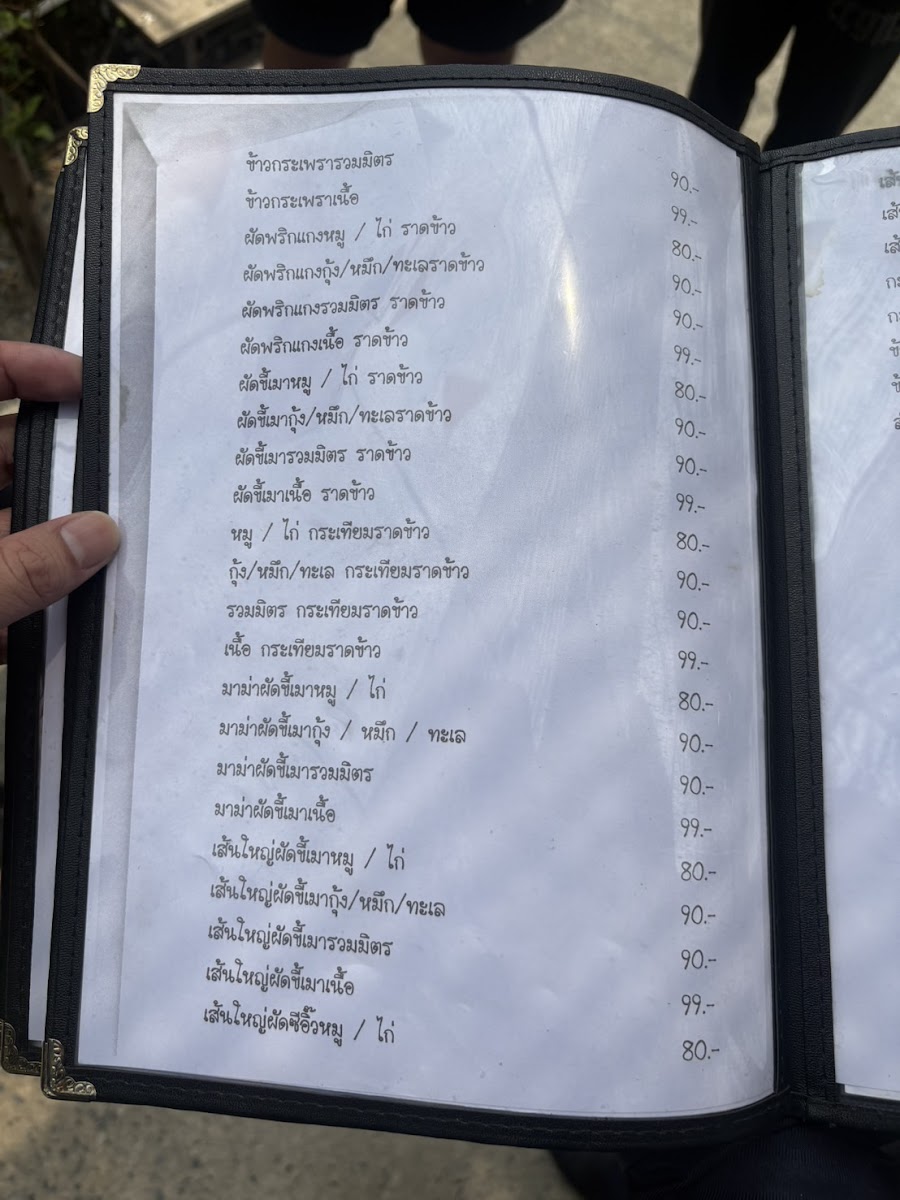 ข้าวกระเพรารวมมิตร 90.-
ข้าวกระเพราเนื้อ 99.-
ผัดพริกแกงหมู / ไก่ ราดข้าว 80.-
ผัดพริกแกงกุ้ง/หมึก/ทะเลราดข้าว 90.-
ผัดพริกแกงรวมมิตร ราดข้าว 90.-
ผัดพริกแกงเนื้อ ราดข้าว 99.-
ผัดขี้เมาหมู / ไก่ ราดข้าว 80.-
ผัดขี้เมากุ้ง/หมึก/ทะเลราดข้าว 90.-
ผัดขี้เมารวมมิตร ราดข้าว 90.-
ผัดขี้เมาเนื้อ ราดข้าว 99.-
หมู / ไก่ กระเทียมราดข้าว 80.-
กุ้ง/หมึก/ทะเล กระเทียมราดข้าว 90.-
รวมมิตร กระเทียมราดข้าว 90.-
เนื้อ กระเทียมราดข้าว 99.-
มาม่าผัดขี้เมาหมู / ไก่ 80.-
มาม่าผัดขี้เมากุ้ง / หมึก / ทะเล 90.-
มาม่าผัดขี้เมารวมมิตร 90.-
มาม่าผัดขี้เมาเนื้อ 99.-
เส้นใหญ่ผัดขี้เมาหมู / ไก่ 80.-
เส้นใหญ่ผัดขี้เมากุ้ง/หมึก/ทะเล 90.-
เส้นใหญ่ผัดขี้เมารวมมิตร 90.-
เส้นใหญ่ผัดขี้เมาเนื้อ 99.-
เส้นใหญ่ผัดซีอิ๊วหมู / ไก่ 80.-